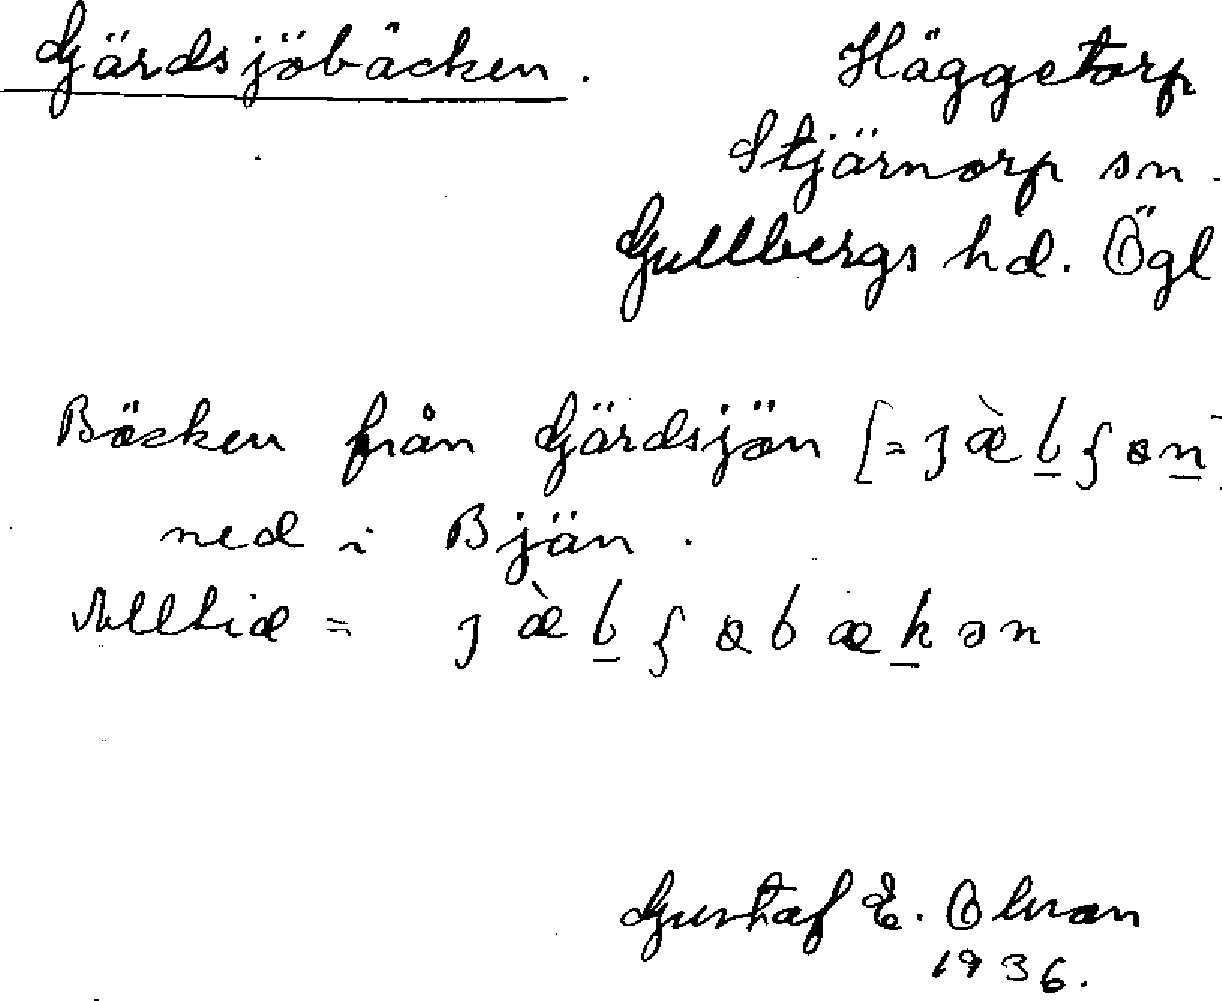 Gärdsjöbäcken. Häggetorp
Stjärnorp sn.
Gullbergs hd. Ögl
Bäcken från Gärdsjön [=
ned i Bjän.
Alltid =
Gustaf E. Olman
1936.